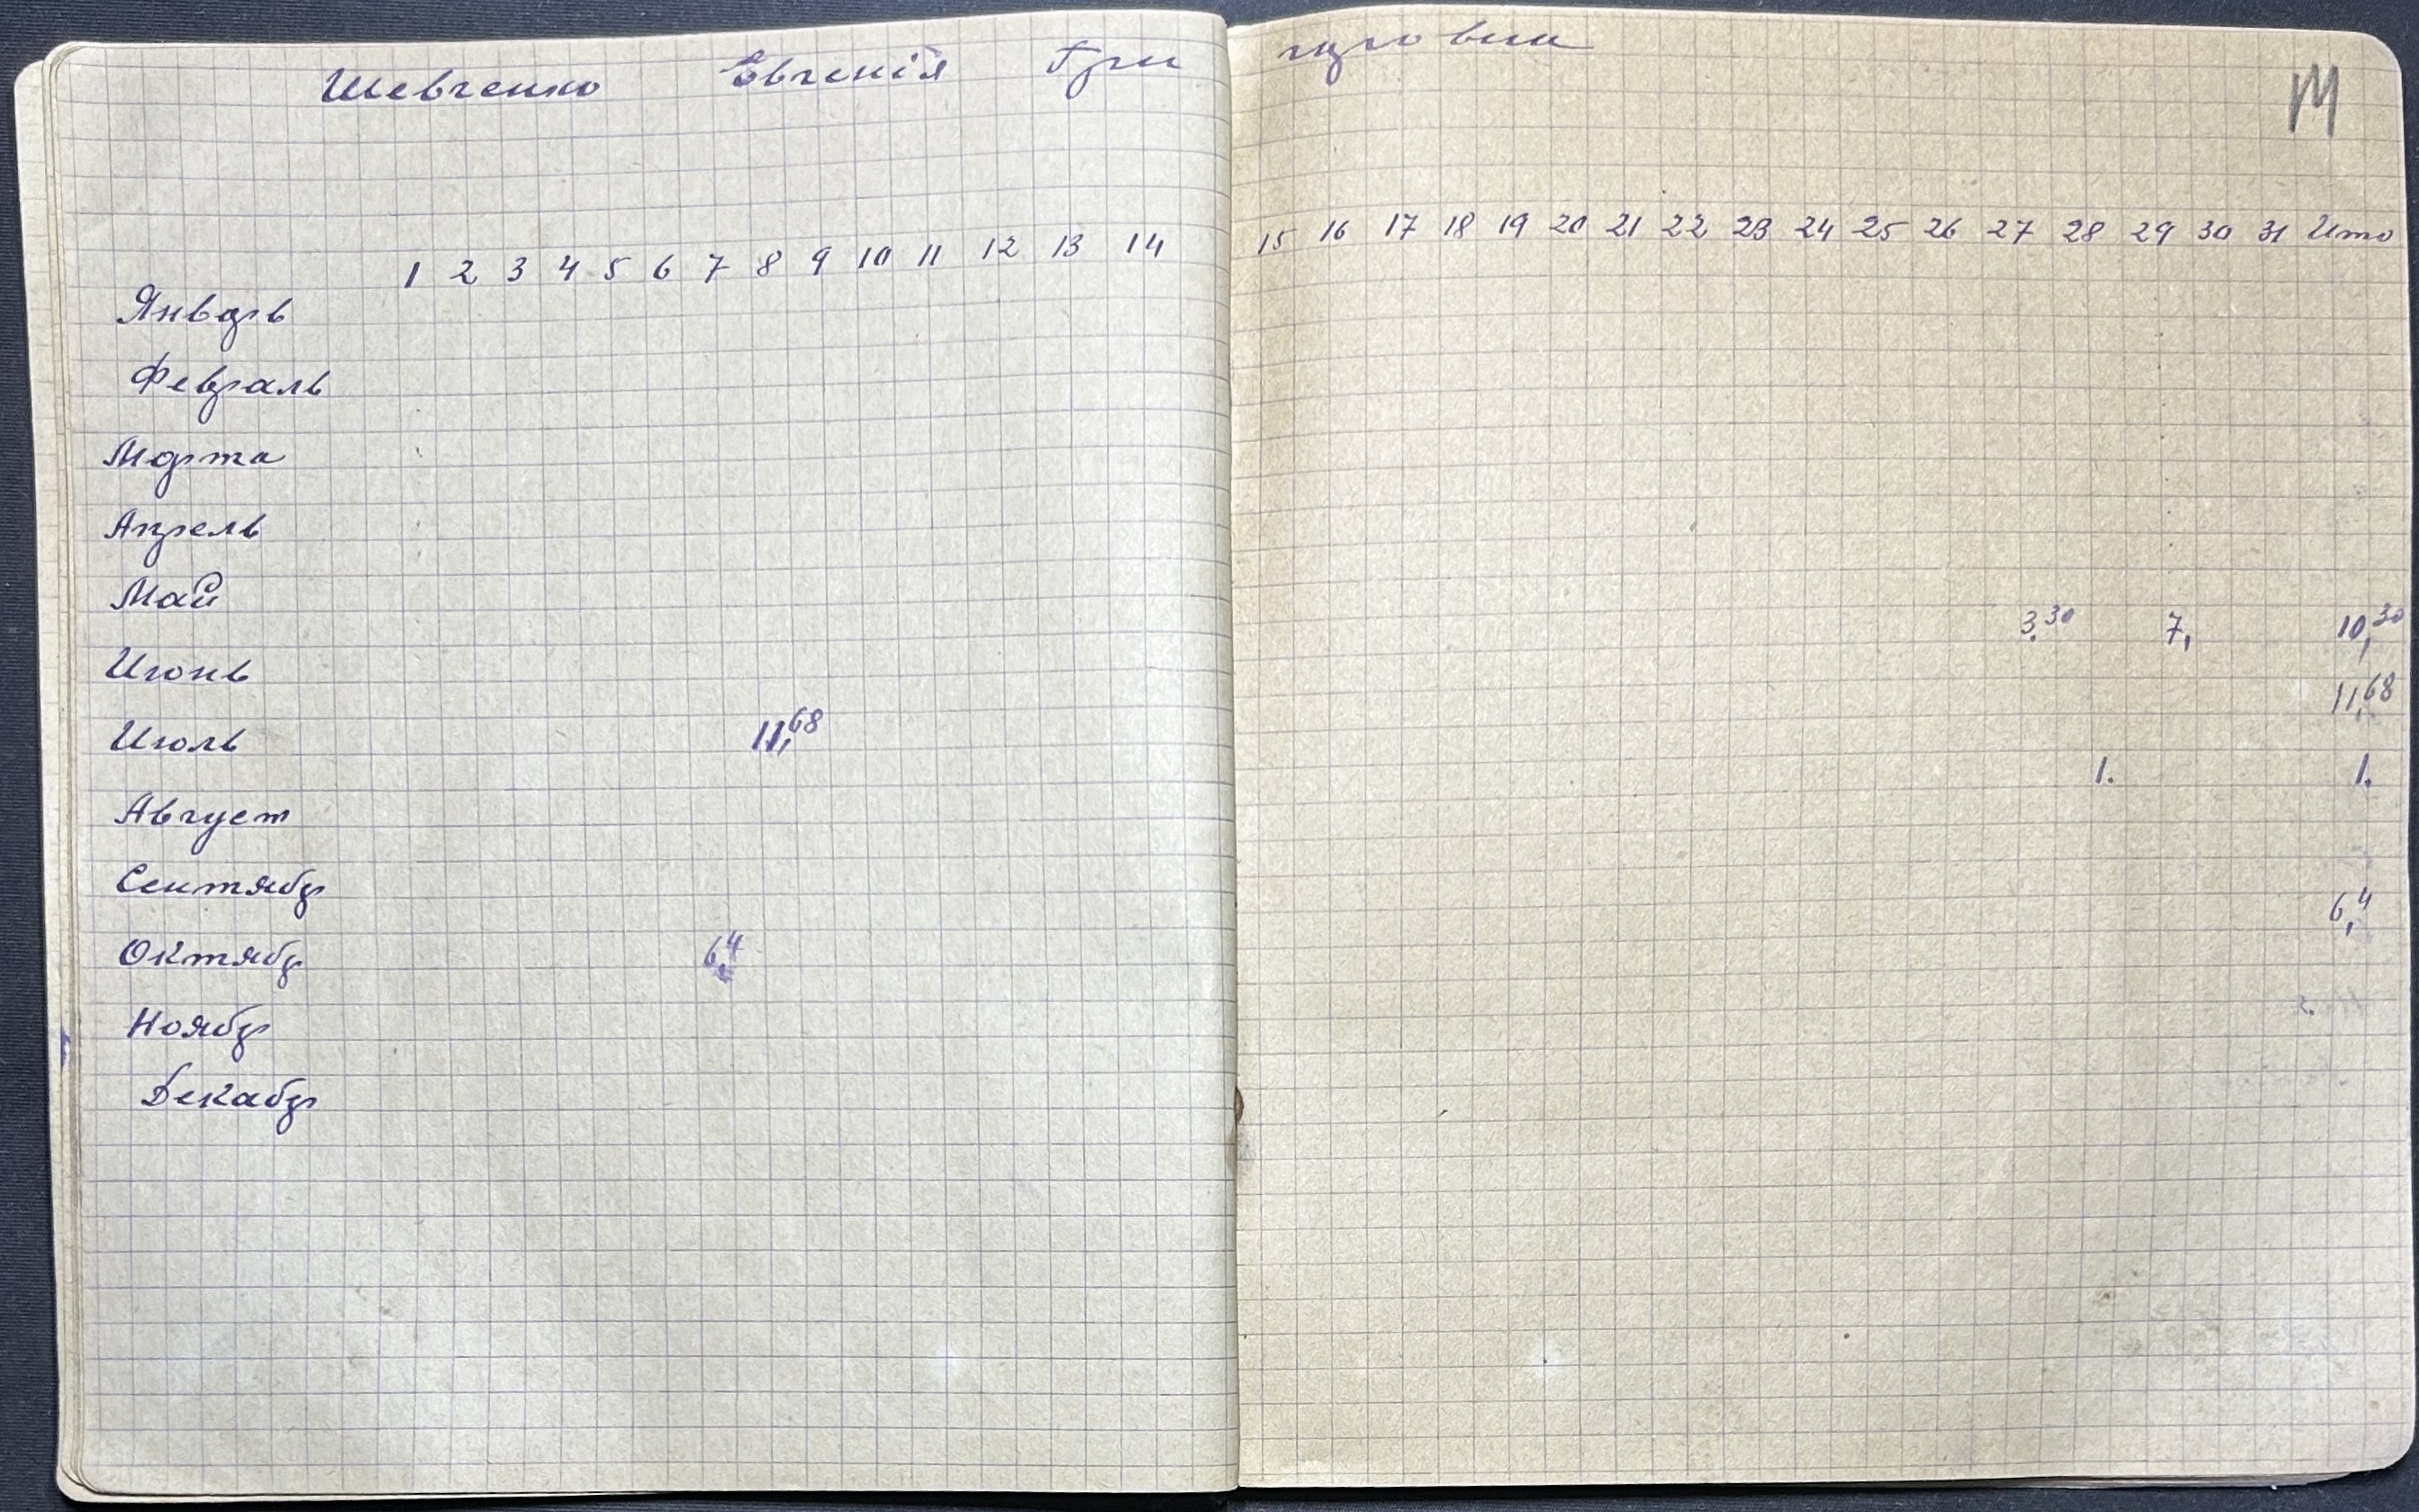 Шевченко Евгенія Гри
М
1 2 3 4 5 6 7 8 9 10 11 12 13 14 15 16 17 18 19 20 21 22 23 24 25 26 27 28 29 30 31 Ито
Январь
Февраль
Марта
Апрель
Май
Июнь 3,30 7, 10,30
Июль 11,68 11,68
Август 1. 1.
Сентябр
Октябр 6,4 6,4
Ноябр
Декабр